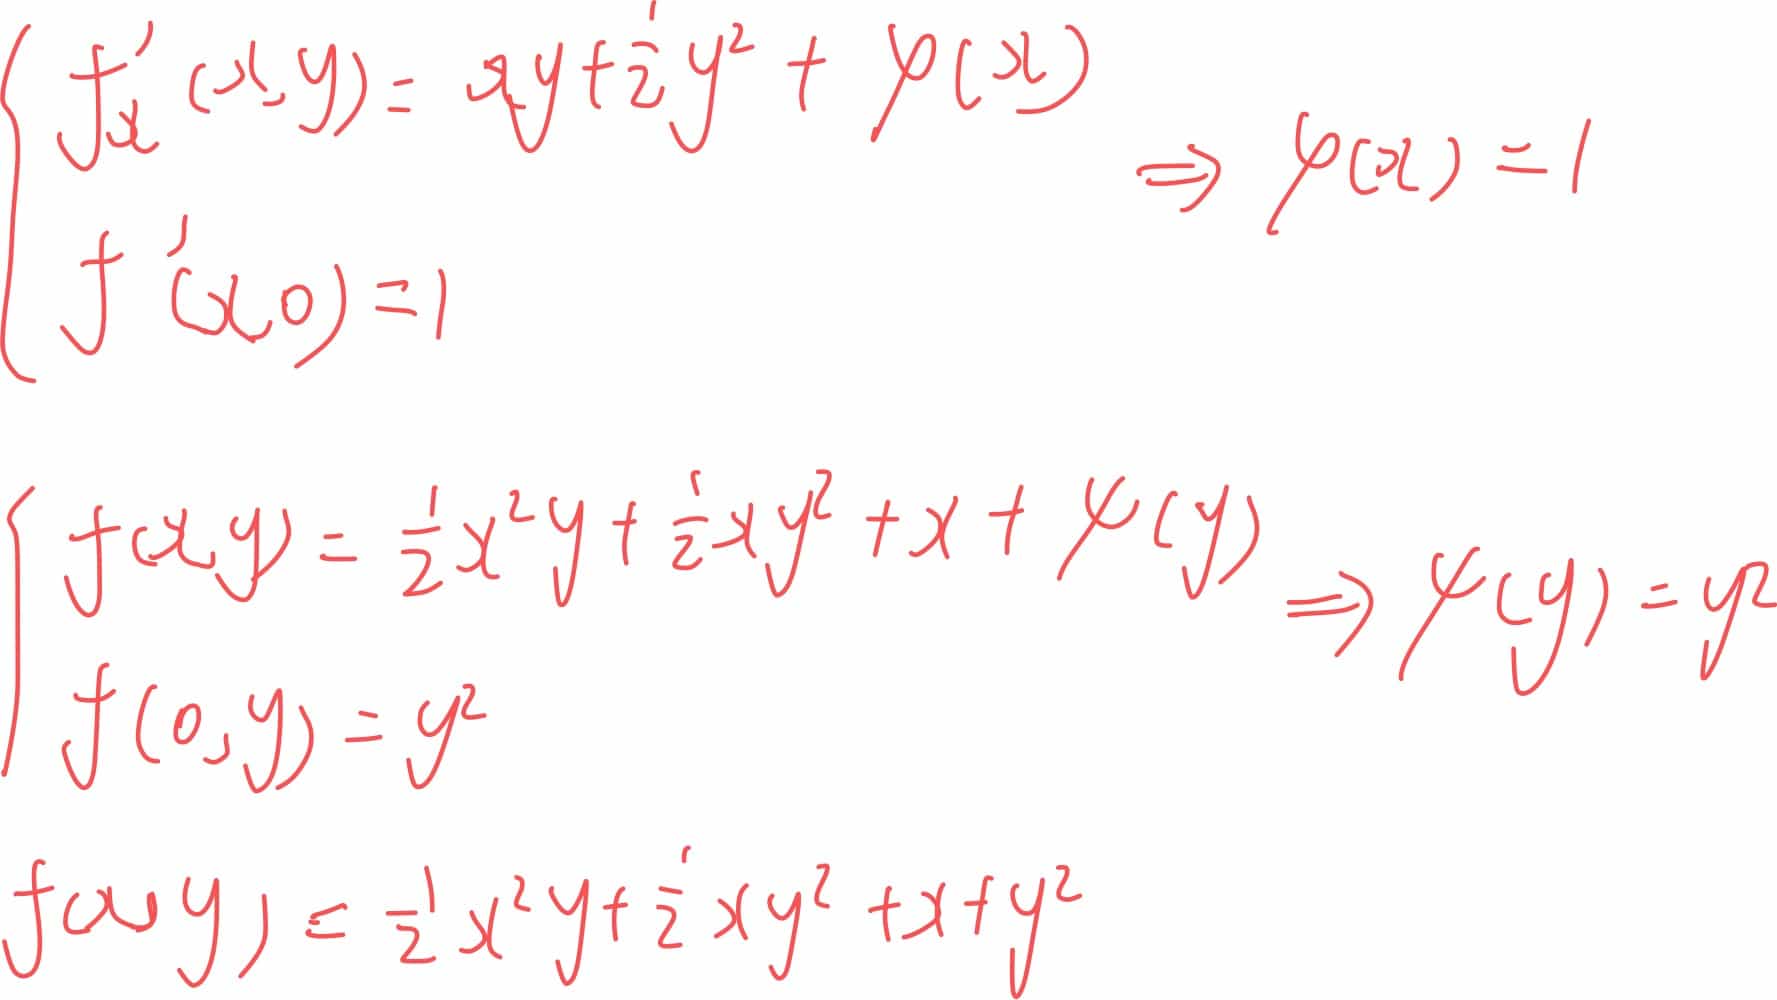 f'ₓ(x,y) = xy + ½y² + φ(x)
⇒ φ(x) = 1
f'(x,0) = 1
f(x,y) = ½x²y + ½xy² + x + ψ(y)
⇒ ψ(y) = y²
f(0,y) = y²
f(x,y) = ½x²y + ½xy² + x + y²